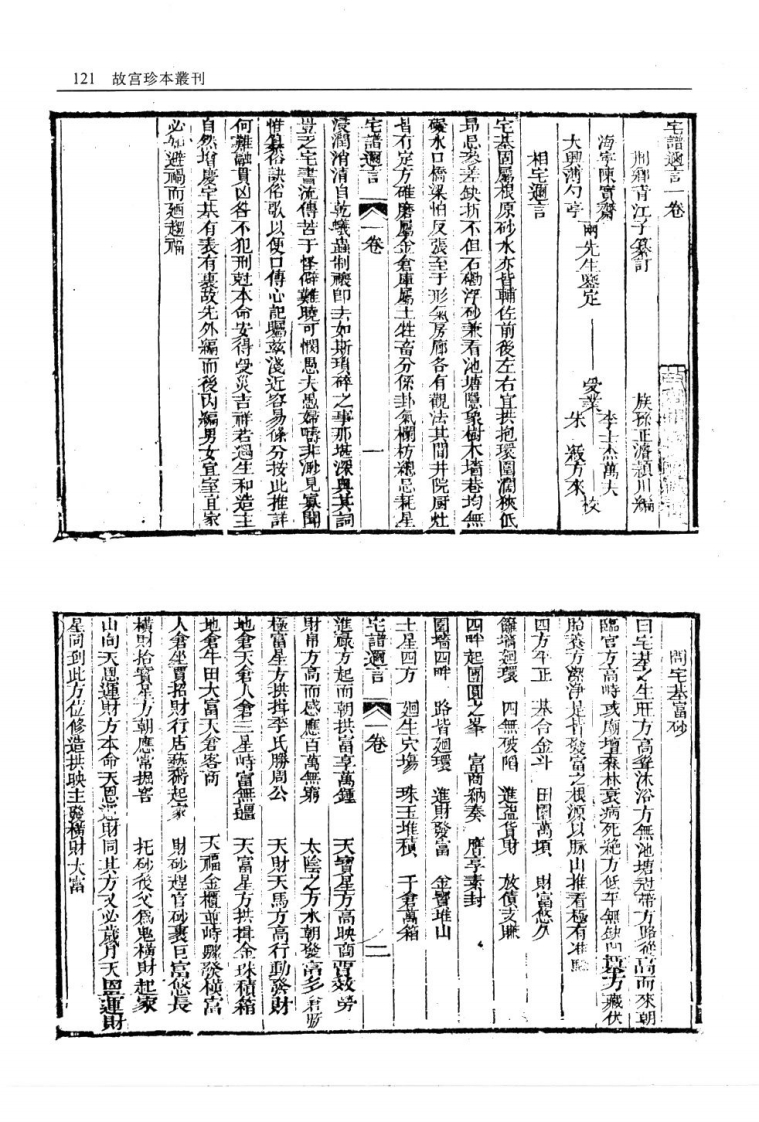 121 故宮珍本叢刊
宅譜邇言一卷
荆鄉青江子纂訂 族孫正濬潁川編
海寧陳實齋
大興薄勺亭 兩先生鑒定 受業 李士杰萬夫 朱 綬方來 校
相宅邇言
宅基固屬根原砂水亦皆輔佐前後左右宜拱抱環圍濶狹低
昻忌叅差缺折不但石磡浮砂兼看池塘隱象樹木墻巷均無
礙水口橋梁怕反張至于形氣房廊各有觀法其間井院厨灶
皆有定方碓磨屬金倉庫屬土牲畜分係卦氣欄枋總忌耗星
宅譜邇言 一卷 一
浸潤消清自乾蟻蟲制禳即去如斯瑣碎之事那堪深奥其詞
豈乏宅書流傳苦于怪僻難曉可憫愚夫愚婦嚋非渺見寡聞
惟纂俗訣俗歌以便口傳心記驅兹淺近容易條分按此推詳
何難融貫凶咎不犯刑尅本命安得受災吉祥若遇生和造主
自然增慶宅基有表有裏故先外編而後内編男女宜室宜家
必知避禍而廻趨福
問宅基富砂
曰宅基之生旺方高聳沐浴方無池塘冠帶方路從高而來朝
臨官方高峙或廟壇森林衰病死絶方低平無缺凹 方藏伏
胎養方潔淨是皆發富之根源以脉山推看極有准驗
四方平正 基合金斗 田園萬頃 財富悠久
籬墻廻環 四無破陷 進益貨財 放債支賬
四畔起團圓之峯 富商納奏 廣享素封
圍墻四畔 路皆廻環 進財發富 金寶堆山
土星四方 廻生穴塲 珠玉堆積 千倉萬箱
宅譜邇言 一卷 二
進祿方起而朝拱富享萬鍾 天寶星方高映商賈效勞
財帛方高而感應百萬無窮 太陰之方水朝發富多
極富星方拱揖李氏勝周公 天財天馬方高行動發財
地倉天倉人倉三星峙富無疆 天富星方拱揖金珠積箱
地倉牛田大富天倉客商 天福金櫃並峙驟發橫富
人倉坐賈招財行店藝術起家 財砂趕官砂裏巨富悠長
橫財拾寳星方朝應常掘窖 托砂後父爲鬼橫財起家
山向天恩運財方本命天恩運財同其方又必歲月天恩運財
星同到此方位修造拱映主發橫財大富